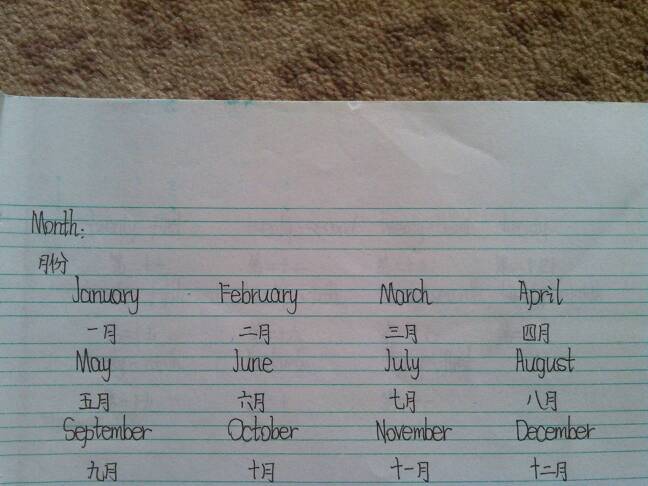 Month:
月份
January February March April
一月 二月 三月 四月
May June July August
五月 六月 七月 八月
September October November December
九月 十月 十一月 十二月